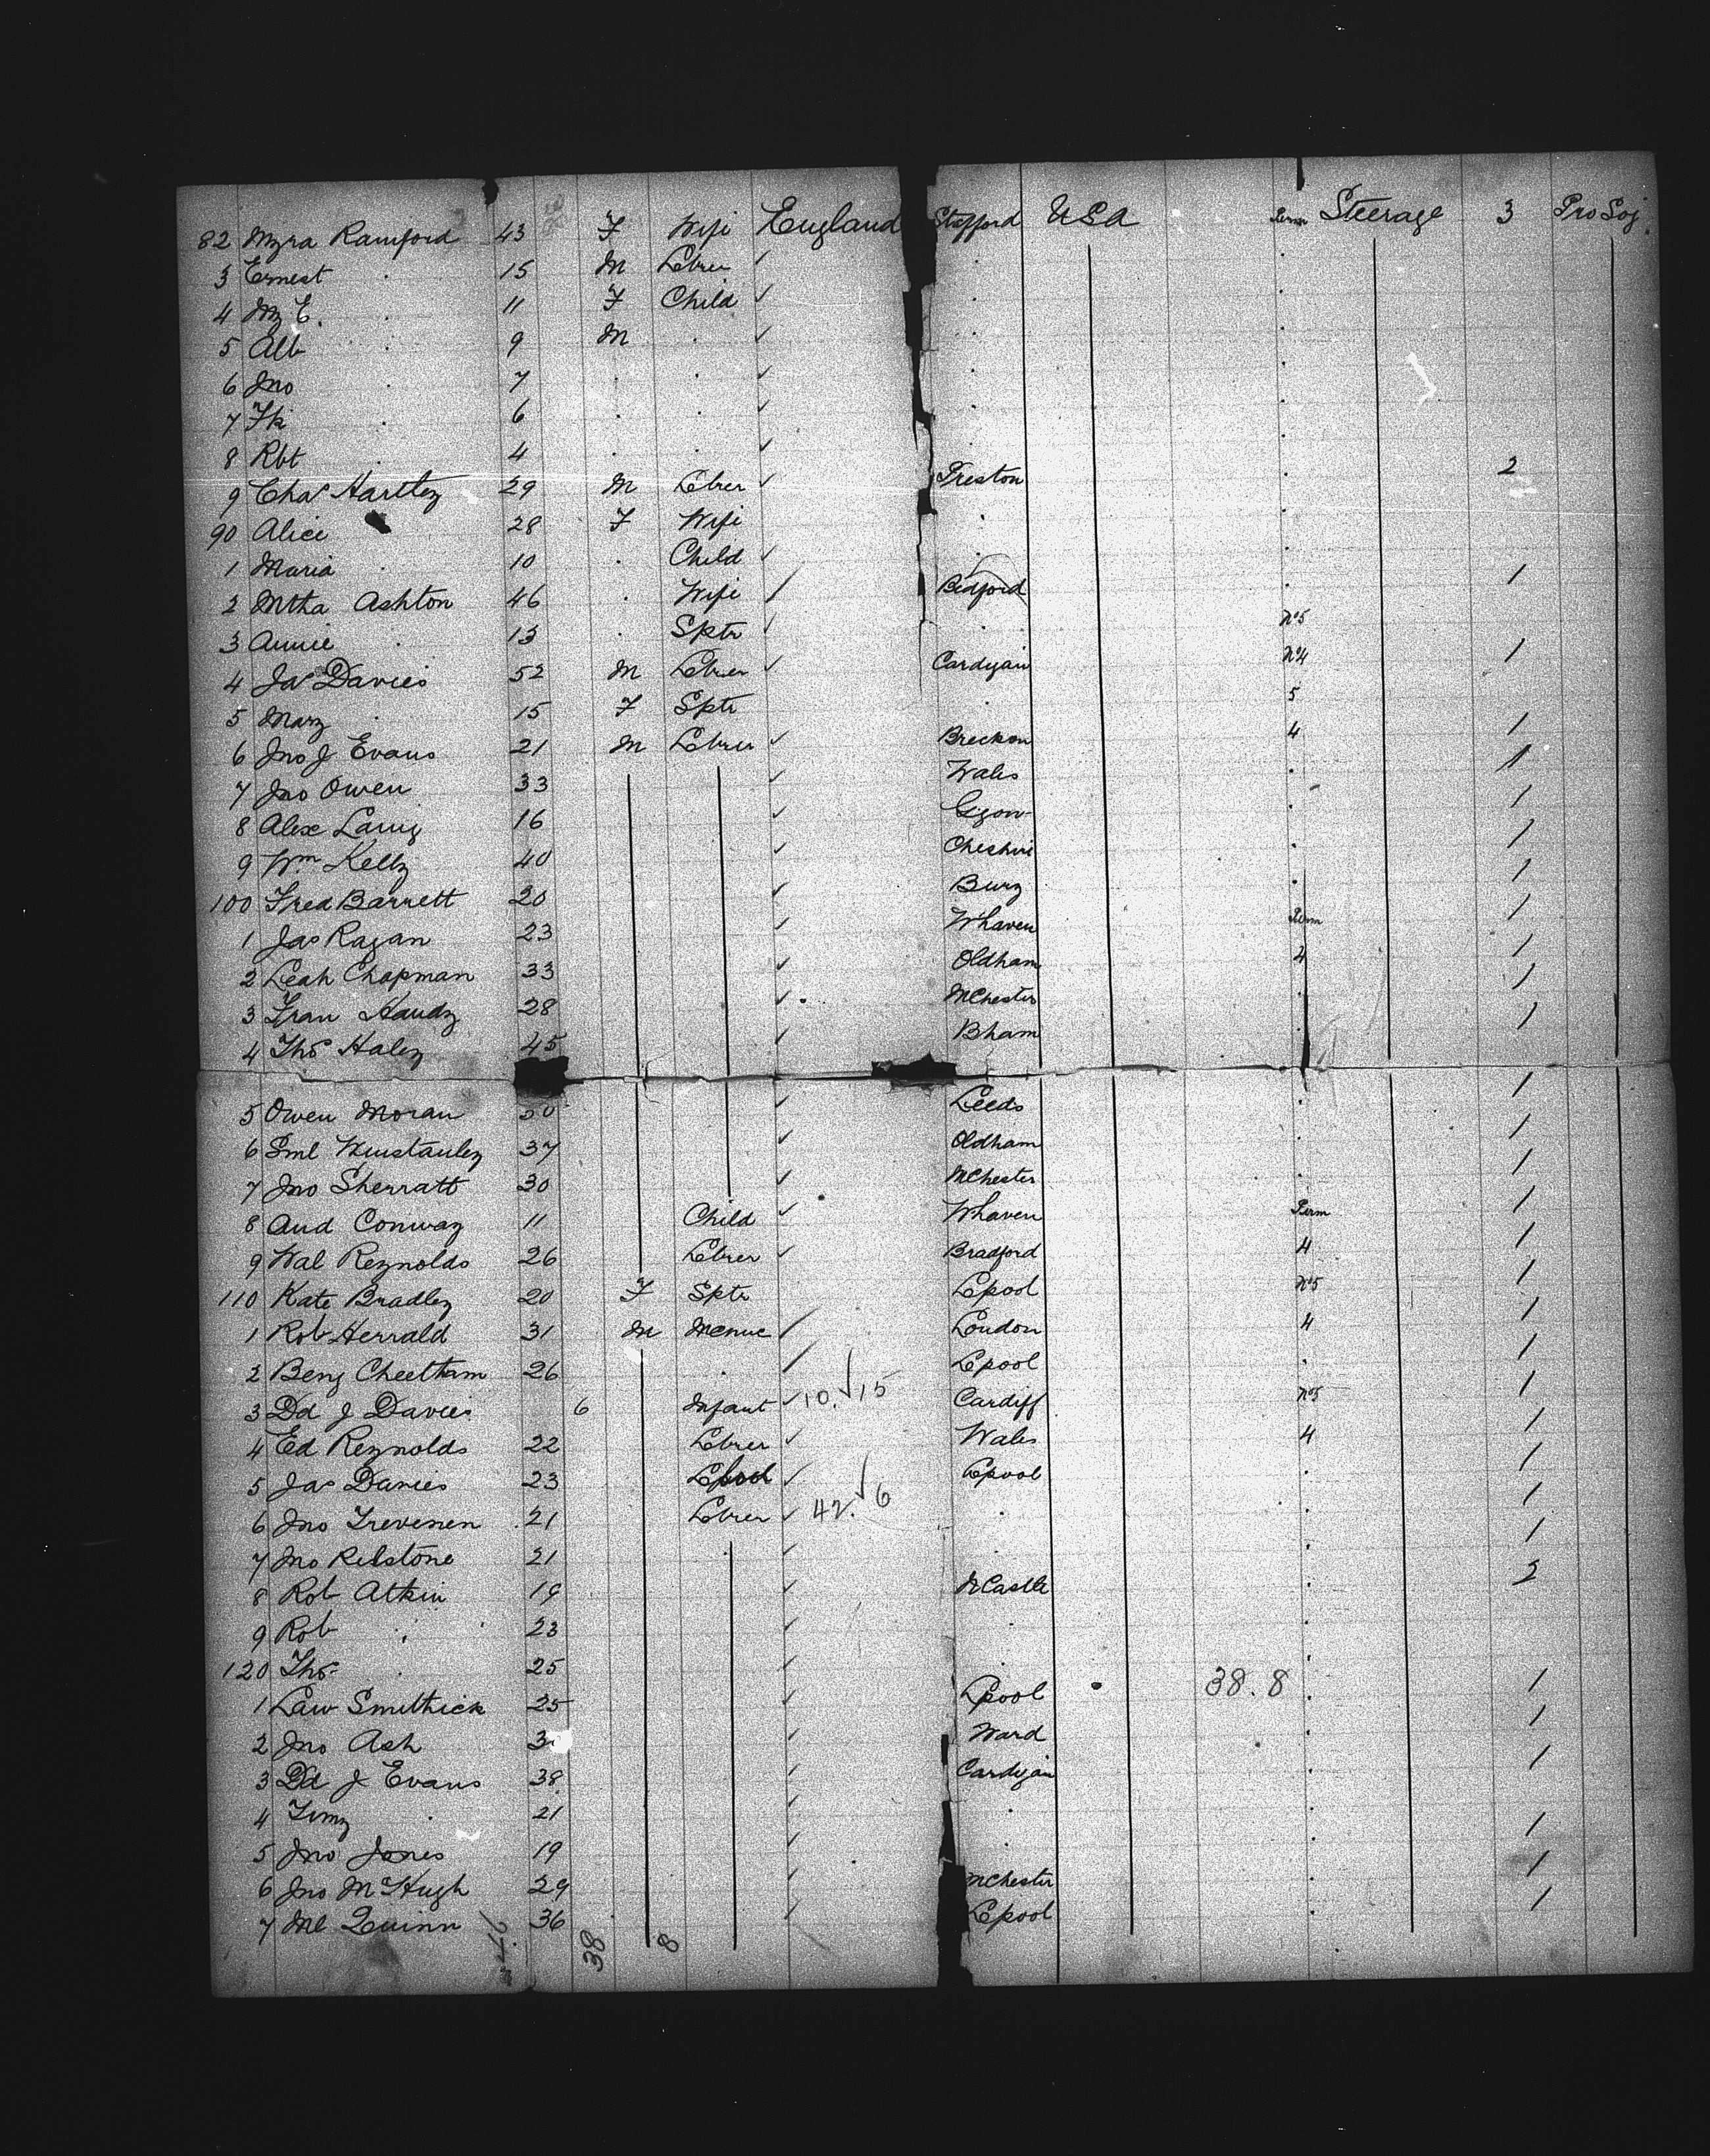 82 Myra Ramford 43 F Wife England Stafford USA Perm Steerage 3 Pro Soj
3 Ernest . 15 M Lbrer ✓ . .
4 My E. . 11 F Child ✓ . .
5 Alb . 9 M . ✓ . .
6 Jno . 7 . . ✓ . .
7 Fk . 6 . . ✓ . .
8 Rbt . 4 . . ✓ . .
9 Chas Hartley 29 M Lbrer ✓ Preston . 2
90 Alice 28 F Wife . .
1 Maria . 10 . Child ✓ . .
2 Mtha Ashton 46 . Wife / Bedford . 1
3 Annie . 13 . Sptr ✓ . No5
4 Jas Davies 52 M Lbrer ✓ Cardigan No4 1
5 Mary . 15 F Sptr . 5
6 Jno J Evans 21 M Lbrer ✓ Breckon 4 1
7 Jno Owen 33 ✓ Wales . 1
8 Alex Laing 16 ✓ Glgow . 1
9 Wm Kelly 40 ✓ Cheshire . 1
100 Fred Barrett 20 ✓ Bury . 1
1 Jas Ragan 23 ✓ Whaven Perm 1
2 Leah Chapman 33 ✓ Oldham 4 1
3 Fran Handy 28 ✓ Mchester . 1
4 Thos Haley 45 ✓ Bham . 1
5 Owen Moran ✓ Leeds . 1
6 Sml Winstanley 37 ✓ Oldham . 1
7 Jno Sherratt 30 ✓ Mchester . 1
8 And Conway 11 Child ✓ Whaven Perm 1
9 Wal Reynolds 26 Lbrer ✓ Bradford 4 1
110 Kate Bradley 20 F Sptr Lpool No5 1
1 Rob Herrald 31 M / London 4 1
2 Benj Cheetham 26 . / Lpool . 1
3 Dd J Davies 6 Infant ✓ 10. ✓15 Cardiff No5 1
4 Ed Reynolds 22 Lbrer ✓ Wales 4 1
5 Jas Davies 23 ✓ Lpool . 1
6 Jno Trevenen 21 Lbrer ✓ 42. ✓6 . . 1
7 Jno Relstone 21 ✓ . . 1
8 Rob Atkin 19 ✓ NCastle . 3
9 Rob . 23 ✓ . .
120 Thos . 25 ✓ . .
1 Law Smithick 25 ✓ Lpool 38.8 . 1
2 Jno Ash ✓ Ward . 1
3 Dd J Evans 38 ✓ Cardigan . 1
4 Timy . 21 ✓ . .
5 Jno Jones 19 ✓ . . 1
6 Jno McHugh 29 ✓ Mchester . 1
7 Ml Quinn 36 ✓ Lpool . 1
38 8